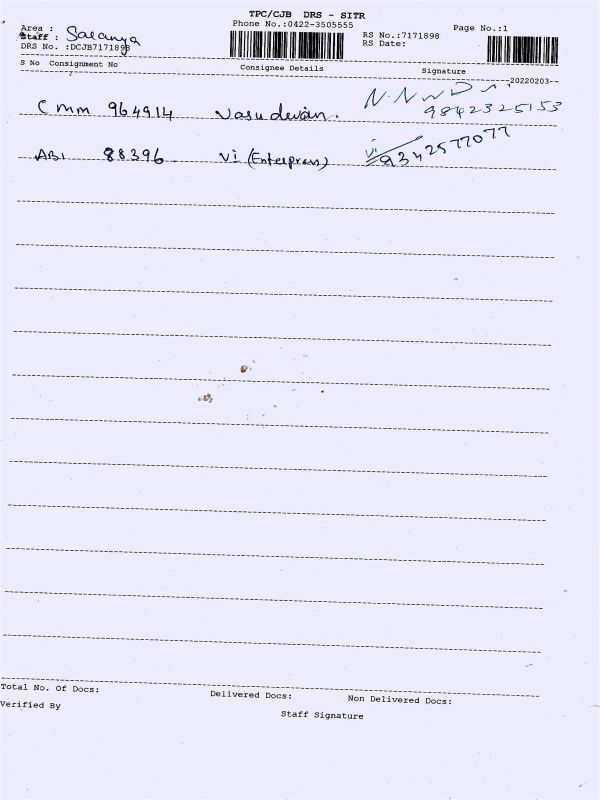 TPC/CJB DRS - SITR
Phone No.:0422-3505555
Page No.:1
Area :
Staff : Saranya
RS No.:7171898
RS Date:
DRS No. :DCJB7171898
S No Consignment No Consignee Details Signature
20220203--
Cmm 964914 Vasudevan. 9842325153
AB1 88396 Vi (Enterprass) Vi 9342577077
Total No. Of Docs: Delivered Docs: Non Delivered Docs:
Verified By Staff Signature